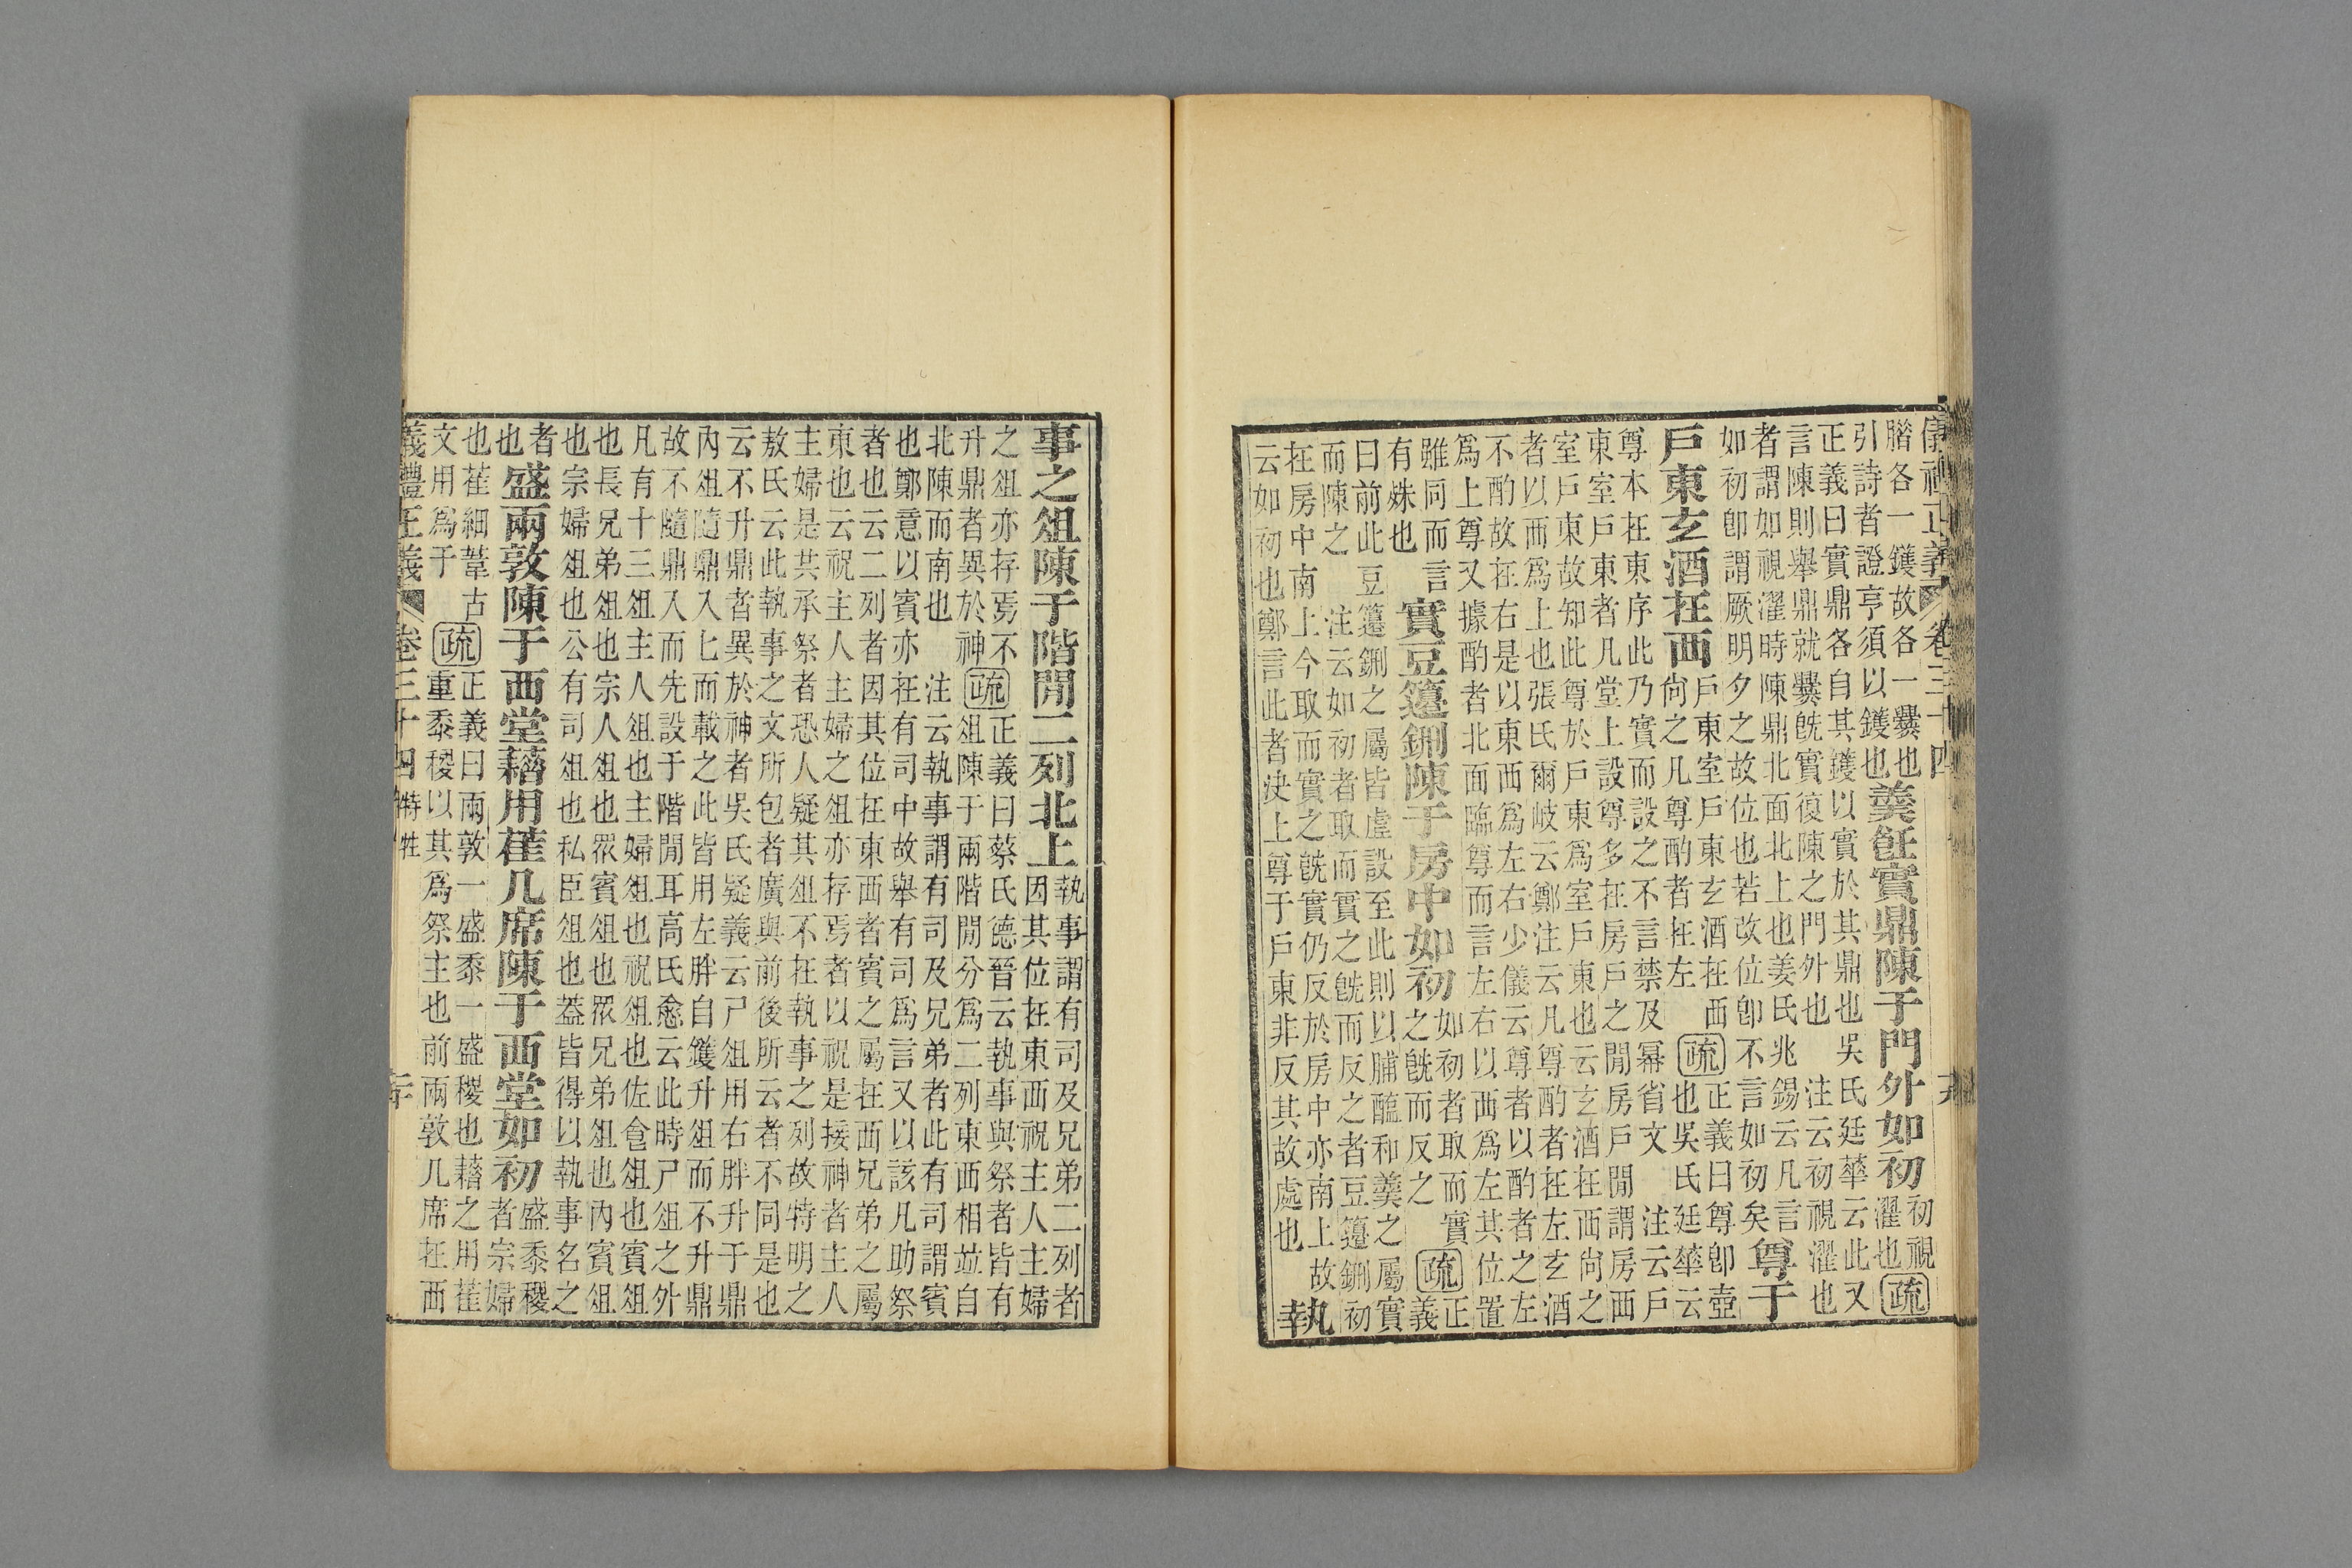 儀禮正義 卷三十四
腊各一鑊故各一爨也
引詩者證亨須以鑊也
羹飪實鼎陳于門外如初
初視
濯也
疏
正義曰實鼎各自其鑊以實於其鼎也吳氏廷華云此又
言陳則舉鼎就爨旣實復陳之門外也 注云初視濯也
者謂如視濯時陳鼎北面北上也姜氏兆錫云凡言
如初卽謂厥明夕之故位也若改位卽不言如初矣
尊于
戶東玄酒在西
戶東室戶東玄酒在西
尚之凡尊酌者在左
疏
正義曰尊卽壺
也吳氏廷華云
尊本在東序此乃實而設之不言禁及冪省文 注云戶
東室戶東者凡堂上設尊多在房戶之閒房戶閒謂房西
室戶東故知此尊於戶東爲室戶東也云玄酒在西尚之
者以西爲上也張氏爾岐云鄭注云凡尊酌者在左玄酒
不酌故在右是以東西爲左右少儀云尊者以酌者之左
爲上尊又據酌者北面臨尊而言左右以西爲左其位置
雖同而言
有殊也
實豆籩鉶陳于房中如初
如初者取而實
之旣而反之
疏
正
義
曰前此豆籩鉶之屬皆虛設至此則以脯醢和羹之屬實
而陳之 注云如初者取而實之旣而反之者豆籩鉶初
在房中南上今取而實之旣實仍反於房中亦南上故
云如初也鄭言此者決上尊于戶東非反其故處也
執
事之俎陳于階閒二列北上
執事謂有司及兄弟二列者
因其位在東西祝主人主婦
之俎亦存焉不
升鼎者異於神
疏
正義曰蔡氏德晉云執事與祭者皆有
俎陳于兩階閒分爲二列東西相竝自
北陳而南也 注云執事謂有司及兄弟者此有司謂賓
也鄭意以賓亦在有司中故舉有司爲言又以該凡助祭
者也云二列者因其位在東西者賓之屬在西兄弟之屬
東也云祝主人主婦之俎亦存焉者以祝是接神者主人
主婦是共承祭者恐人疑其俎不在執事之列故特明之
敖氏云此執事之文所包者廣與前後所云者不同是也
云不升鼎者異於神者吳氏疑義云尸俎用右胖升于鼎
內俎隨鼎入匕而載之此皆用左胖自鑊升俎而不升鼎
故不隨鼎入而先設于階閒耳高氏愈云此時尸俎之外
凡有十三俎主人俎也主婦俎也祝俎也佐食俎也賓俎
也長兄弟俎也宗人俎也眾賓俎也眾兄弟俎也內賓俎
也宗婦俎也公有司俎也私臣俎也蓋皆得以執事名之
者
也
盛兩敦陳于西堂藉用萑几席陳于西堂如初
盛黍稷
者宗婦
也萑細葦古
文用爲于
疏
正義曰兩敦一盛黍一盛稷也藉之用萑
重黍稷以其爲祭主也前兩敦几席在西
義禮正義 卷三十四 特牲